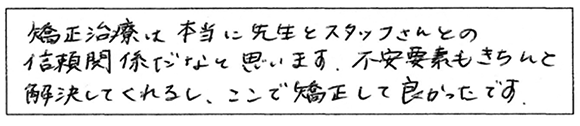 矯正治療は本当に先生とスタッフさんとの
信頼関係だなと思います．不安要素もきちんと
解決してくれるし、ここで矯正して良かったです．